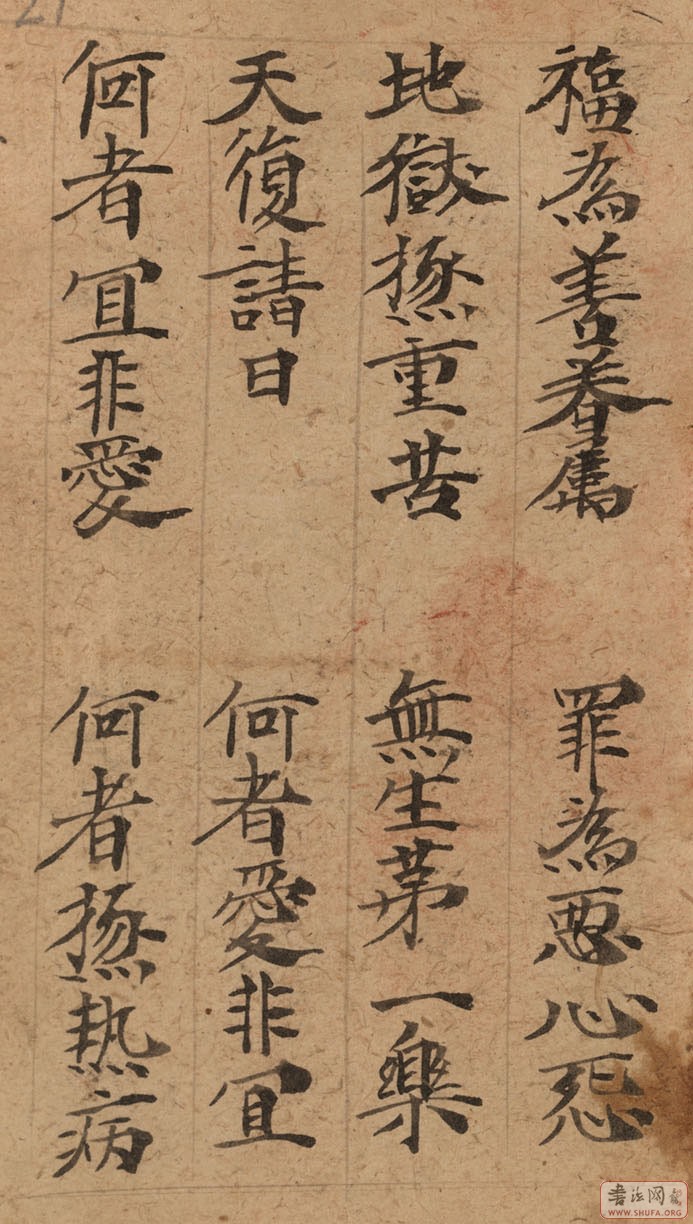 福為善眷属　罪為惡心怨
地獄極重苦　無生苐一樂
天復請曰　何者愛非冝
何者冝非愛　何者極热病
書法网
WWW.SHUFA.ORG